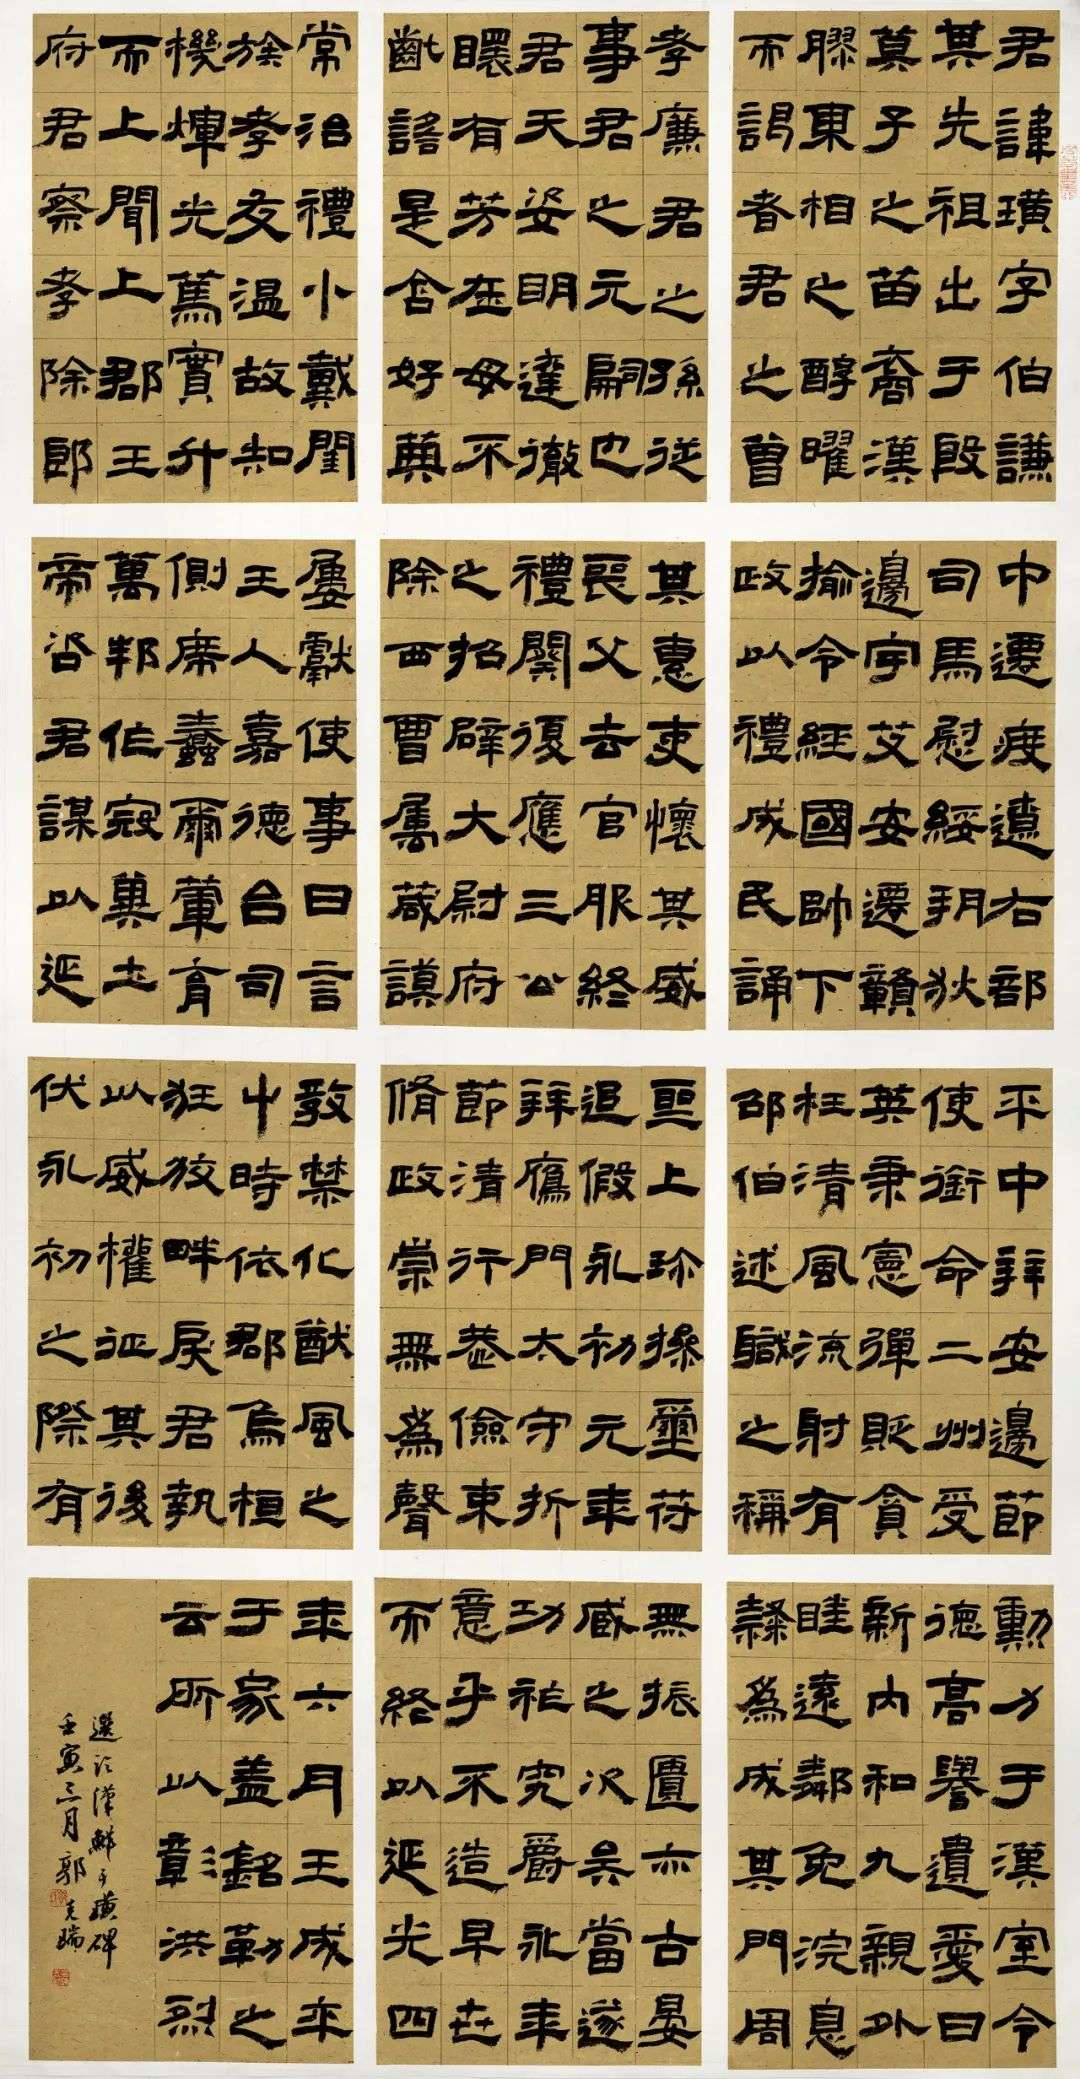 君諱璜字伯謙
其先祖出于殷
萁子之苗裔漢
膠東相之醇曜
而謁者君之曾
孝廉君之孫從
事君之元嗣也
君天姿明達徹
瞏有芳在母不
齔詻是含好典
常治禮小戴閨
族孝友溫故知
機煇光篤實升
而上聞上郡王
府君察孝除郎
中遷度遼右部
司馬慰綏朔狄
邊宇艾安遷贛
揄令經國帥下
政以禮成民誦
其惠吏懷其威
喪父去官服終
禮闋復應三公
之招辟大尉府
除西曹屬葴謨
屢獻使事日言
王人嘉德台司
側席蠢爾葷育
萬邦作寇輿士
帝咨君謀以延
平中拜安邊節
使銜命二州受
莢秉憲彈貶貪
枉清風流射有
邵伯述職之稱
聖上珍操璽符
追假永初元年
拜鴈門太守折
節清行恭儉束
脩政崇無為聲
教禁化猷風之
中時依郡烏桓
狂狡畔戾君執
以威權征其後
伏永初之際有
勳力于漢室令
德高譽遺愛日
新內和九親外
睦遠鄰免浣息
隸為成其門周
無振匱亦古晏
臧之次矣當遂
功祚究爵永年
意乎不造早世
而終以延光四
年六月壬戌卒
于家蓋銘勒之
云所以彰洪烈
選臨漢鮮于璜碑
壬寅三月郭克瑞